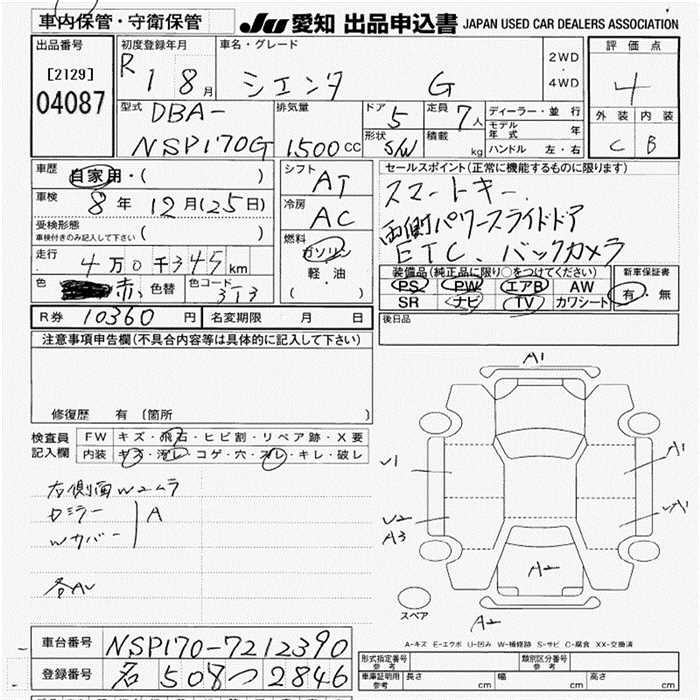 車内保管・守衛保管
JU 愛知 出品申込書 JAPAN USED CAR DEALERS ASSOCIATION
出品番号 [2129] 04087
初度登録年月 R 1 8月
車名・グレード シエンタ G
2WD・4WD
評価点 4
外装 C 内装 B
型式 DBA-NSP170G
排気量 1500 CC
ドア 5
形状 S/W
定員 7人
積載 kg
ディーラー・並行
モデル年式 年
ハンドル 左・右
車歴 自家用・( )
車検 8年 12月(25日)
受検形態 車検付きのみ記入して下さい ( )
走行 4万0千345km
色 赤 色替 色コード 3T3
シフト AT
冷房 AC
燃料 ガソリン 軽・油 ( )
セールスポイント(正常に機能するものに限ります)
スマートキー.
両側パワースライドドア
ETC、バックカメラ
装備品(純正品に限り○をつけてください)
PS PW エアB AW
SR ナビ TV カワシート
新車保証書 有・無
R券 10360円 名変期限 月 日
後日品
注意事項申告欄(不具合内容等は具体的に記入して下さい)
修復歴 有〔箇所 〕
検査員記入欄
FW キズ・飛石・ヒビ割・リペア跡・X要
内装 キズ・汚レ・コゲ・穴・スレ・キレ・破レ
右側面W2ムラ
ロミラー
Wカバー A
各AU
A1
U1
U2
A3
A1
UA1
A2
A2
スペア
A-キズ E-エクボ U-凹み W-補修跡 S-サビ C-腐食 XX-交換済
車台番号 NSP170-7212390
登録番号 名 508 つ 2846
形式指定番号 参考 類別区分番号 参考
車庫証明用 参考 長さ cm 幅 cm 高さ cm